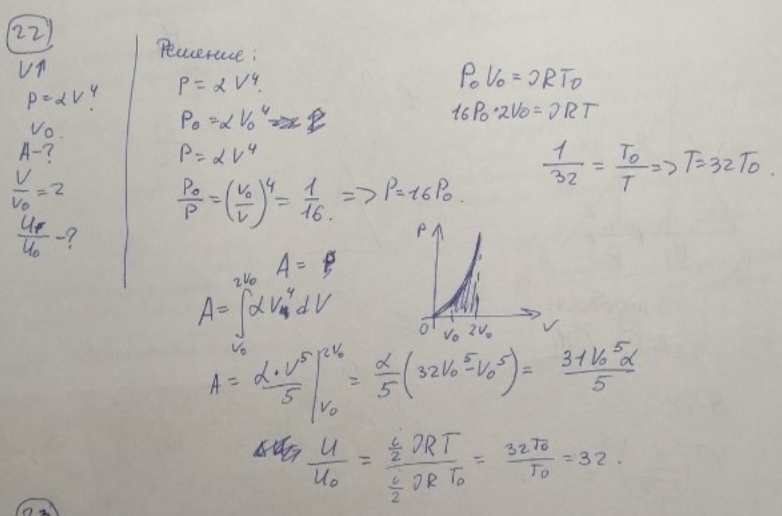 22
V↑
P = αV⁴
V₀
A - ?
V/V₀ = 2
U/U₀ - ?
Решение:
P = αV⁴
P₀ = αV₀⁴
P = αV⁴
P₀/P = (V₀/V)⁴ = 1/16 => P = 16P₀.
P₀V₀ = νRT₀
16P₀·2V₀ = νRT
1/32 = T₀/T => T = 32T₀.
A =
P
0 V₀ 2V₀ V
A = ∫_{V₀}^{2V₀} αV⁴dV
A = α·V⁵/5 |_{V₀}^{2V₀} = α/5 (32V₀⁵ - V₀⁵) = 31V₀⁵α/5
U/U₀ = (i/2 νRT)/(i/2 νRT₀) = 32T₀/T₀ = 32.
23